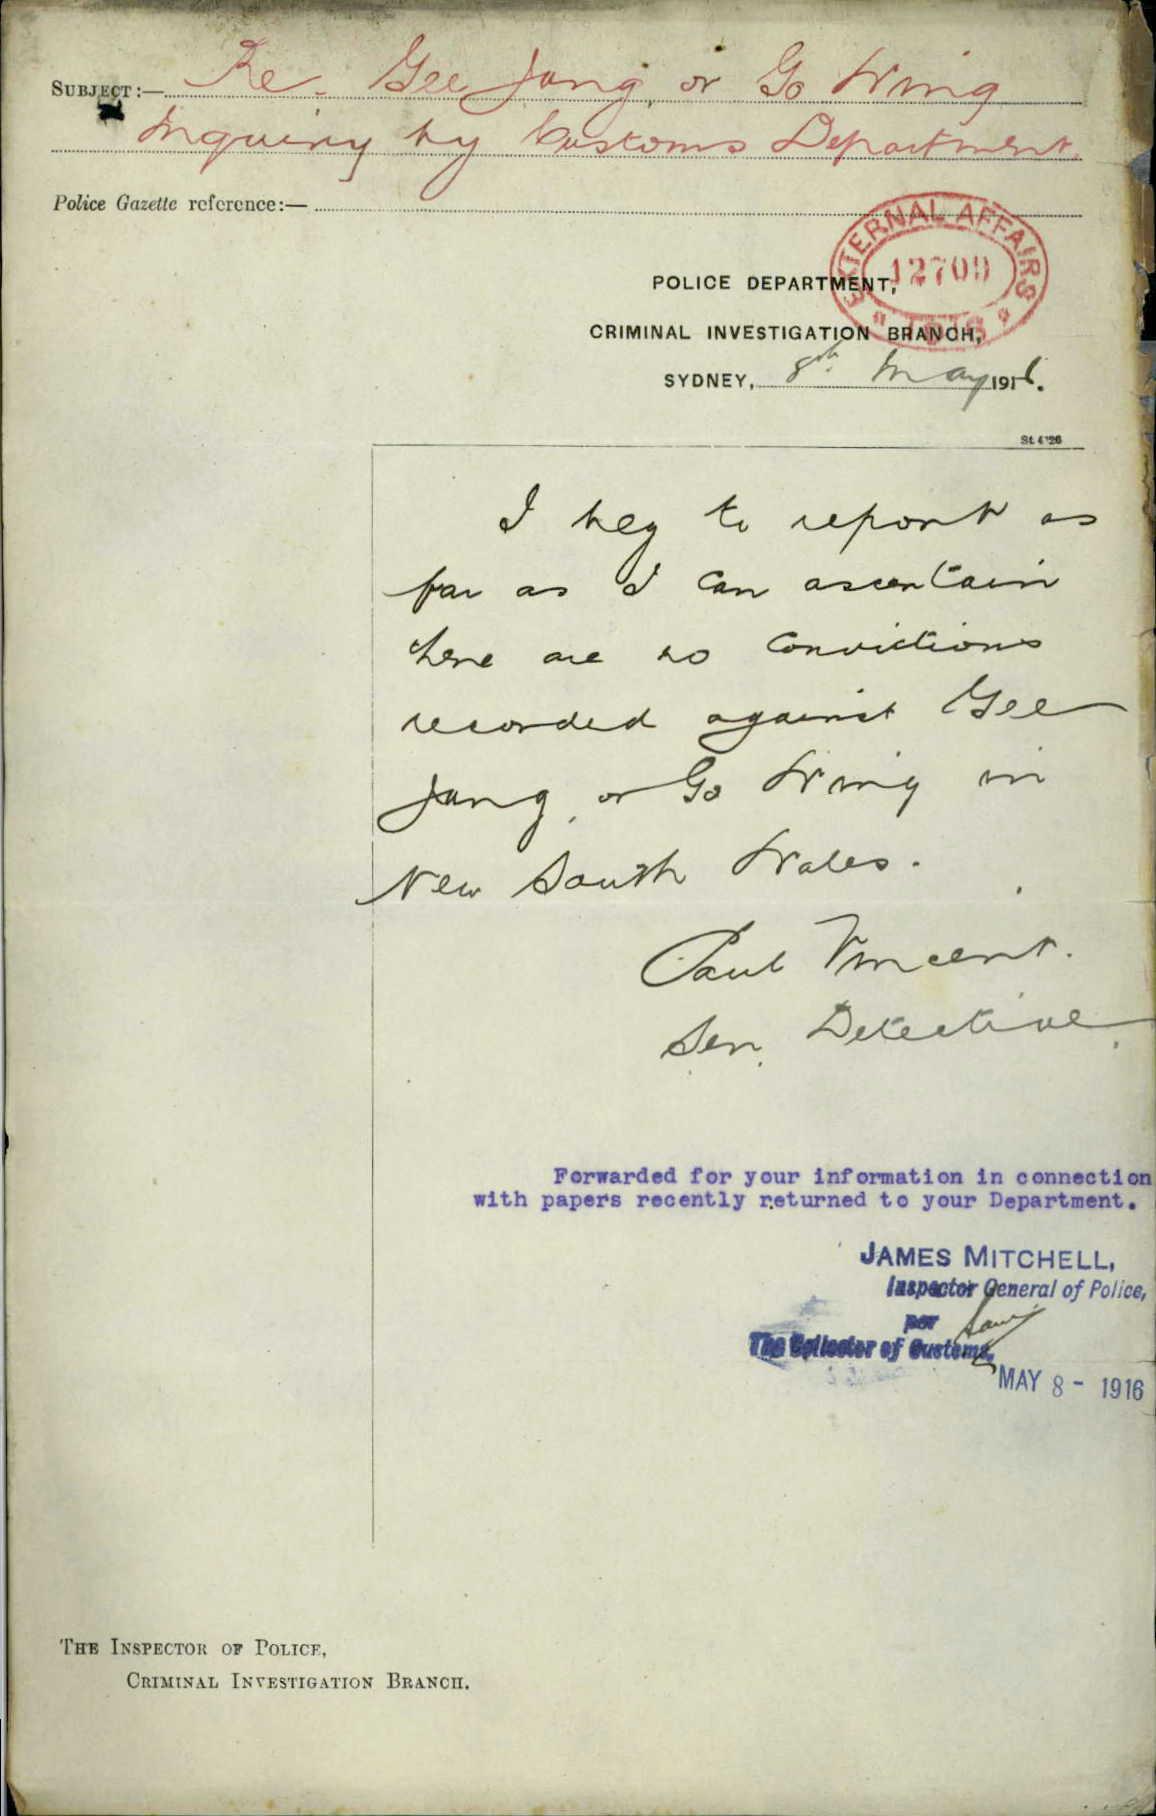 SUBJECT:— Re. Gee Jang, or Go Wing
Inquiry by Customs Department.
Police Gazette reference:—
EXTERNAL AFFAIRS
12709
1916
POLICE DEPARTMENT,
CRIMINAL INVESTIGATION BRANCH,
SYDNEY, 8th. May 1916.
St. 4726
I beg to report as
far as I can ascertain
there are no convictions
recorded against Gee
Jang, or Go Wing in
New South Wales.
Paul Vincent.
Sen. Detective.
Forwarded for your information in connection
with papers recently returned to your Department.
JAMES MITCHELL,
Inspector General of Police,
per
The Collector of Customs,
MAY 8 - 1916
THE INSPECTOR OF POLICE,
CRIMINAL INVESTIGATION BRANCH.